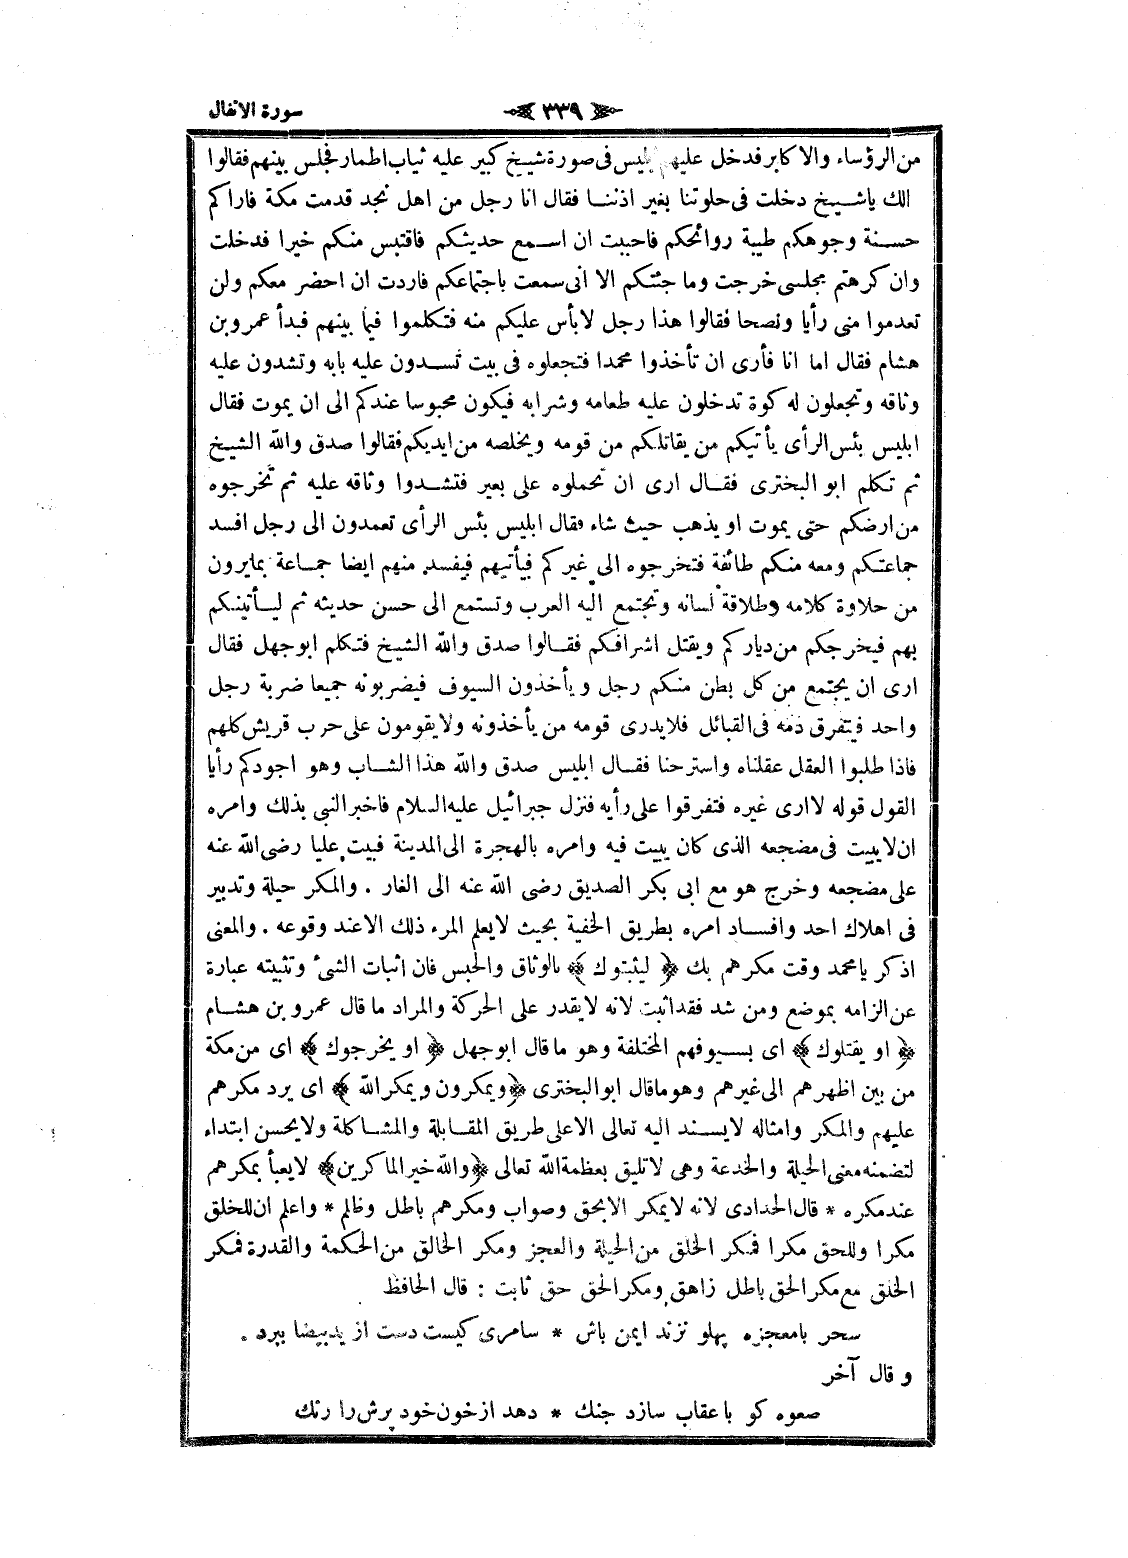 سورة الانفال ٣٣٩
من الرؤساء والاكابر فدخل عليهم ابليس فى صورة شيخ كبير عليه ثياب اطمار فجلس بينهم فقالوا
الك ياشيخ دخلت فى حلوتنا بغير اذننا فقال انا رجل من اهل نجد قدمت مكة فاراكم
حسنة وجوهكم طيبة روائحكم فاحببت ان اسمع حديثكم فاقتبس منكم خيرا فدخلت
وان كرهتم مجلسى خرجت وما جئتكم الا انى سمعت باجتماعكم فاردت ان احضر معكم ولن
تعدموا منى رأيا ونصحا فقالوا هذا رجل لابأس عليكم منه فتكلموا فيما بينهم فبدأ عمرو بن
هشام فقال اما انا فأرى ان تأخذوا محمدا فتجعلوه فى بيت تسدون عليه بابه وتشدون عليه
وثاقه وتجعلون له كوة تدخلون عليه طعامه وشرابه فيكون محبوسا عندكم الى ان يموت فقال
ابليس بئس الرأى يأتيكم من يقاتلكم من قومه ويخلصه من ايديكم فقالوا صدق والله الشيخ
ثم تكلم ابو البخترى فقال ارى ان تحملوه على بعير فتشدوا وثاقه عليه ثم تخرجوه
من ارضكم حتى يموت او يذهب حيث شاء فقال ابليس بئس الرأى تعمدون الى رجل افسد
جماعتكم ومعه منكم طائفة فتخرجوه الى غيركم فيأتيهم فيفسد منهم ايضا جماعة بمايرون
من حلاوة كلامه وطلاقة لسانه وتجتمع اليه العرب وتستمع الى حسن حديثه ثم ليأتينكم
بهم فيخرجكم من دياركم ويقتل اشرافكم فقالوا صدق والله الشيخ فتكلم ابو جهل فقال
ارى ان يجتمع من كل بطن منكم رجل ويأخذون السيوف فيضربونه جميعا ضربة رجل
واحد فيتفرق دمه فى القبائل فلايدرى قومه من يأخذونه ولايقومون على حرب قريش كلهم
فاذا طلبوا العقل عقلناه واسترحنا فقال ابليس صدق والله هذا الشاب وهو اجودكم رأيا
القول قوله لاارى غيره فتفرقوا على رأيه فنزل جبرائيل عليه السلام فاخبر النبى بذلك وامره
ان لايبيت فى مضجعه الذى كان يبيت فيه وامره بالهجرة الى المدينة فبيت عليا رضى الله عنه
على مضجعه وخرج هو مع ابى بكر الصديق رضى الله عنه الى الغار . والمكر حيلة وتدبير
فى اهلاك احد وافساد امره بطريق الخفية بحيث لايعلم المرء ذلك الاعند وقوعه . والمعنى
اذكر يامحمد وقت مكرهم بك ﴿ ليثبتوك ﴾ بالوثاق والحبس فان اثبات الشئ وتثبيته عبارة
عن الزامه بموضع ومن شد فقد اثبت لانه لايقدر على الحركة والمراد ما قال عمرو بن هشام
﴿ او يقتلوك ﴾ اى بسيوفهم المختلفة وهو ما قال ابو جهل ﴿ او يخرجوك ﴾ اى من مكة
من بين اظهرهم الى غيرهم وهو ماقال ابو البخترى ﴿ ويمكرون ويمكر الله ﴾ اى يرد مكرهم
عليهم والمكر وامثاله لايسند اليه تعالى الاعلى طريق المقابلة والمشاكلة ولايحسن ابتداء
لتضمنه معنى الحيلة والخدعة وهى لاتليق بعظمة الله تعالى ﴿ والله خير الماكرين ﴾ لايعبأ بمكرهم
عند مكره * قال الحدادى لانه لايمكر الابحق وصواب ومكرهم باطل وظلم * واعلم ان للخلق
مكرا وللحق مكرا فمكر الخلق من الحيلة والعجز ومكر الخالق من الحكمة والقدرة فمكر
الخلق مع مكر الحق باطل زاهق ومكر الحق حق ثابت : قال الحافظ
سحر بامعجزه پهلو نزند ايمن باش * سامرى كيست دست از يد بيضا ببرد .
وقال آخر
صعوه كو باعقاب سازد جنك * دهد از خون خود پرش را رنك